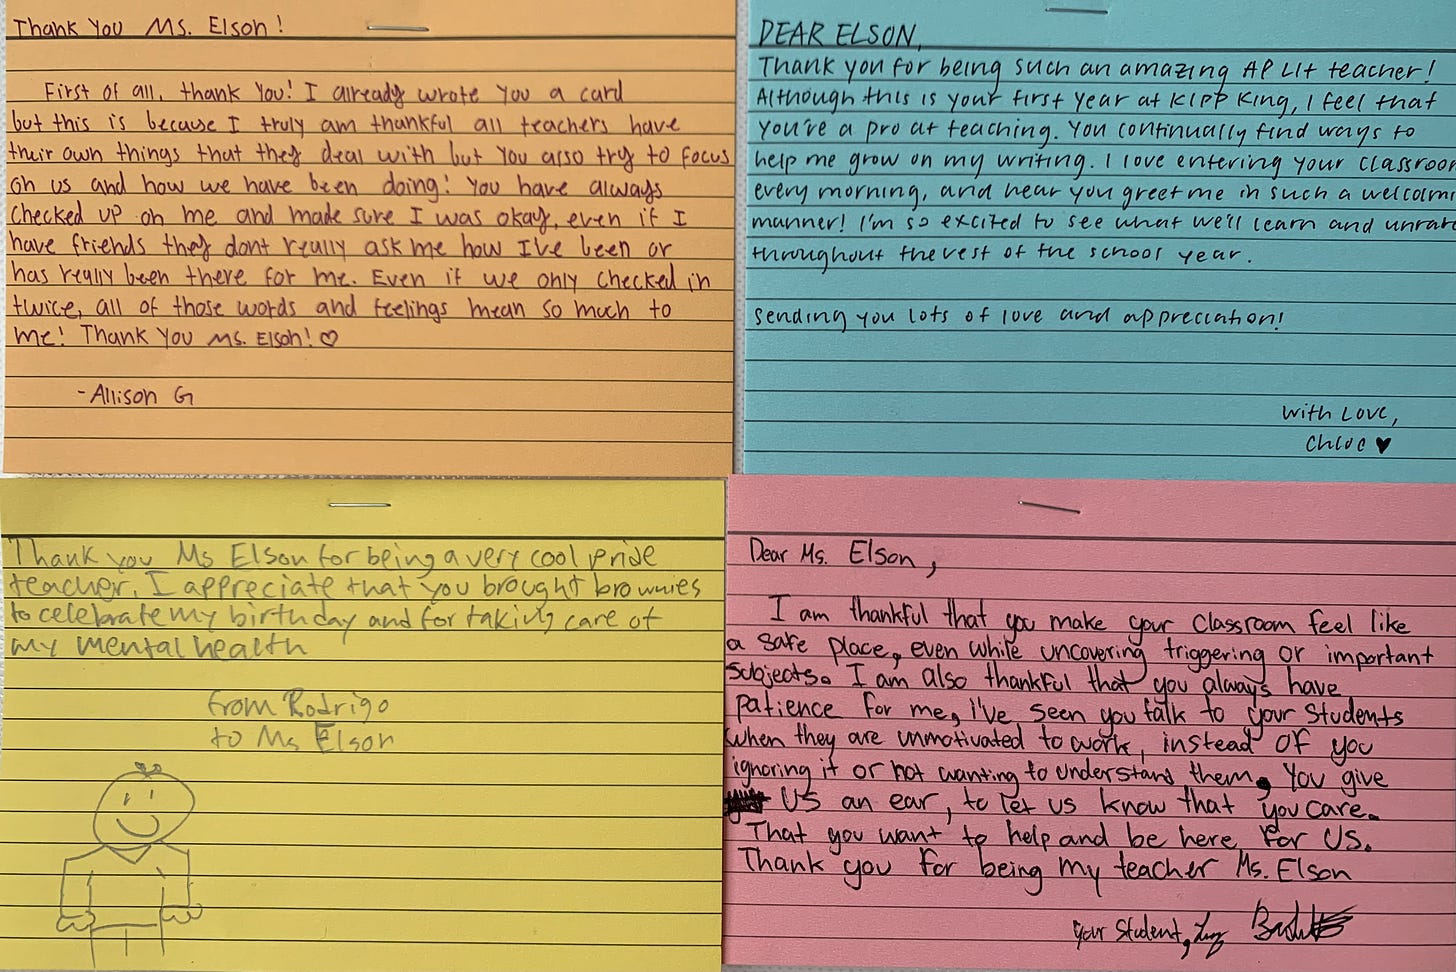 Thank You Ms. Elson!
First of all, thank You! I already wrote You a card
but this is because I truly am thankful all teachers have
their own things that they deal with but You also try to focus
on us and how we have been doing! You have always
checked up on me and made sure I was okay, even if I
have friends they dont really ask me how I've been or
has really been there for me. Even if we only checked in
twice, all of those words and feelings mean so much to
me! Thank You Ms. Elson! ♡
-Allison G
DEAR ELSON,
Thank you for being such an amazing AP Lit teacher!
Although this is your first year at KIPP King, I feel that
you're a pro at teaching. You continually find ways to
help me grow on my writing. I love entering your classroom
every morning, and hear you greet me in such a welcoming
manner! I'm so excited to see what we'll learn and
throughout the rest of the school year.
Sending you lots of love and appreciation!
With Love,
Chloe ♥
Thank you Ms Elson for being a very cool pride
teacher. I appreciate that you brought brownies
to celebrate my birthday and for taking care of
my mental health
from Rodrigo
to Ms Elson
Dear Ms. Elson,
I am thankful that you make your classroom feel like
a safe place, even while uncovering triggering or important
subjects. I am also thankful that you always have
patience for me, i've seen you talk to your students
when they are unmotivated to work, instead of you
ignoring it or not wanting to understand them, You give
us an ear, to let us know that you care.
That you want to help and be here for us.
Thank you for being my teacher Ms. Elson
your student,